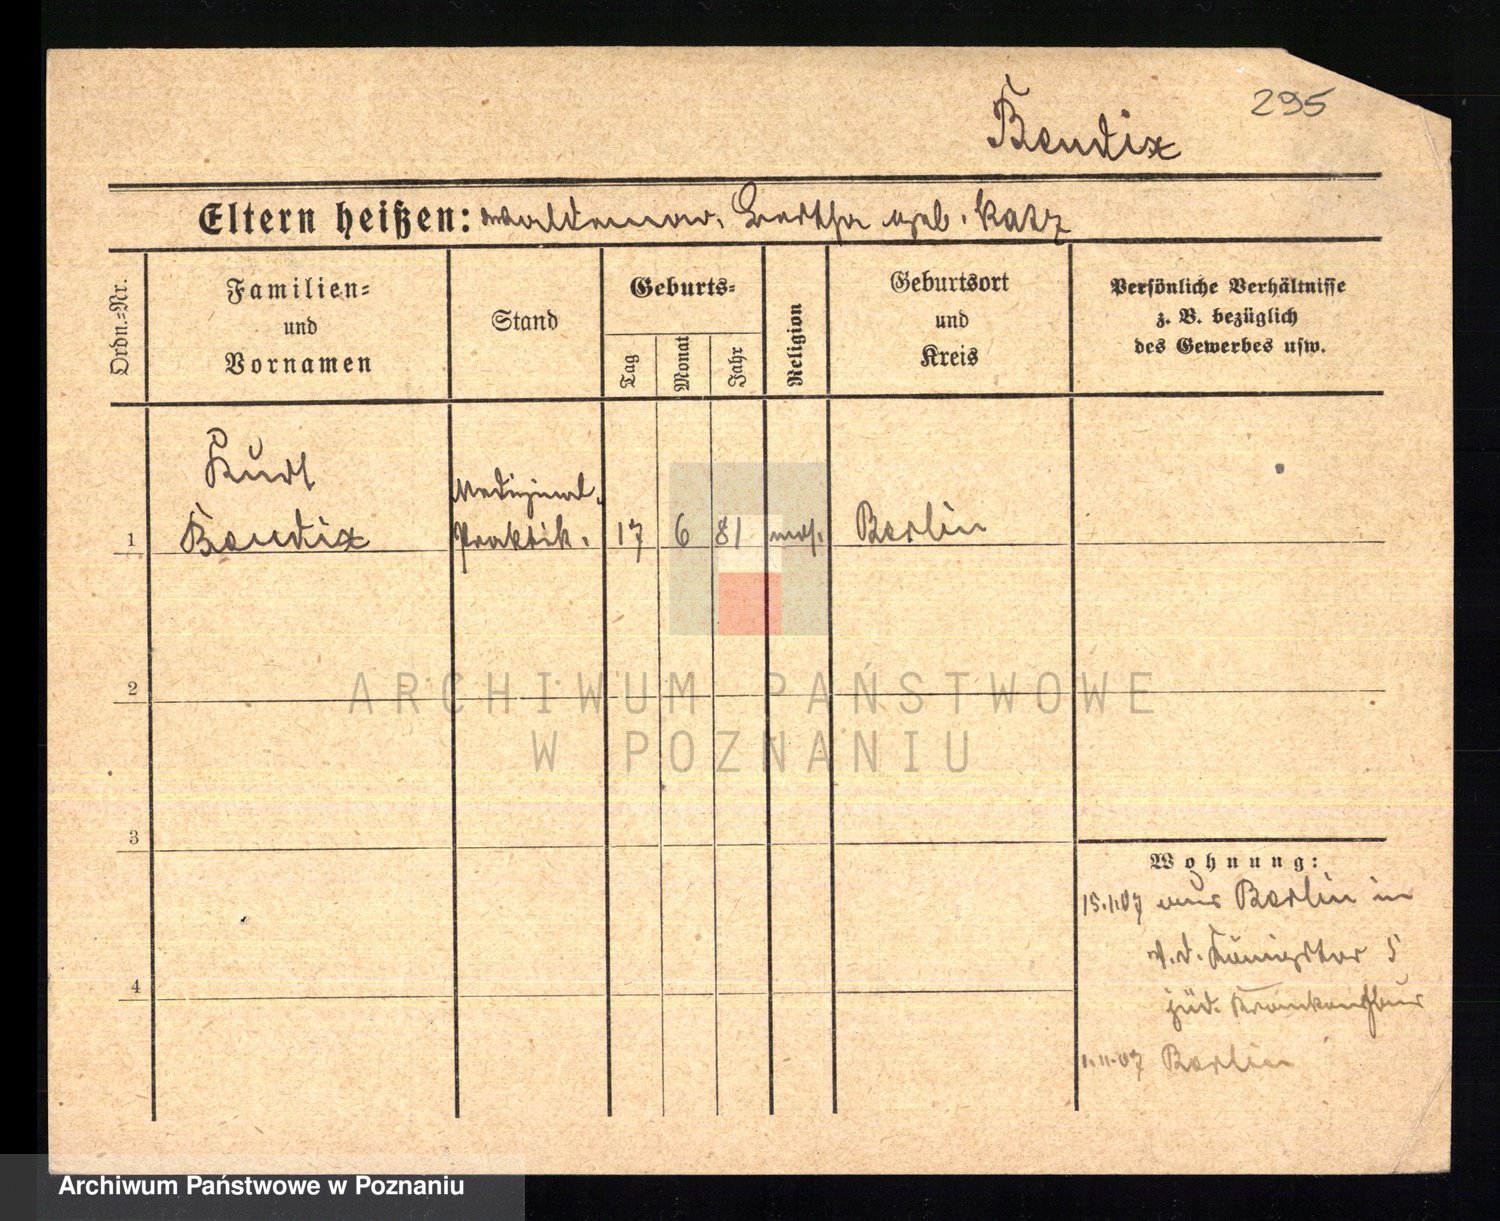 295
Bendix
Eltern heißen: Waldemar, Bertha geb. Katz
Ordn.-Nr.
Familien-
und
Vornamen
Stand
Geburts-
Tag
Monat
Jahr
Religion
Geburtsort
und
Kreis
Persönliche Verhältnisse
z. B. bezüglich
des Gewerbes usw.
Kurt
Medizinal.
1 Bendix Praktik. 17 6 81 mos. Berlin
2
ARCHIWUM PAŃSTWOWE
W POZNANIU
3
Wohnung:
15.1.07 aus Berlin in
v. d. Königstor 5
4
jüd. Krankenhaus
1.11.07 Berlin
Archiwum Państwowe w Poznaniu